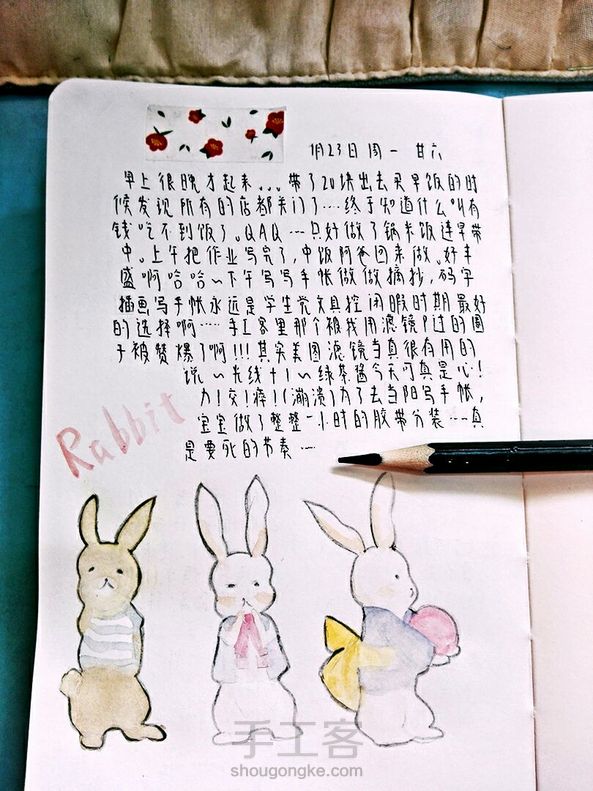 1月23日周一 廿六
早上很晚才起来。。。带了20块出去买早饭的时
候发现所有的店都关门了……终于知道什么叫有
钱吃不到饭了。QAQ……只好做了锅米饭连早带
中。上午把作业写完了，中饭阿爸回来做。好丰
盛啊哈哈～下午写写手帐做做摘抄，码字
插画写手帐永远是学生党文具控闲暇时期最好
的选择啊……手工客里那个被我用滤镜P过的图
子被赞爆了啊!!!其实美图滤镜当真很有用的
说～光线+1～绿茶酱今天可真是心!
力!交!瘁!(崩溃)为了去当阳写手帐，
宝宝做了整整一小时的胶带分装……真
是要死的节奏……
Rabbit
手工客
shougongke.com